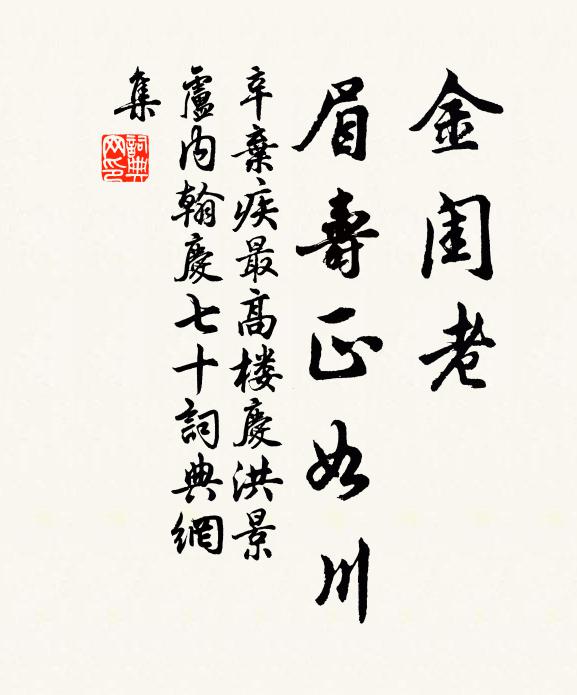 金閨老
眉壽正如川
辛棄疾最高楼慶洪景
廬内翰慶七十詞典網
集
詞典網印